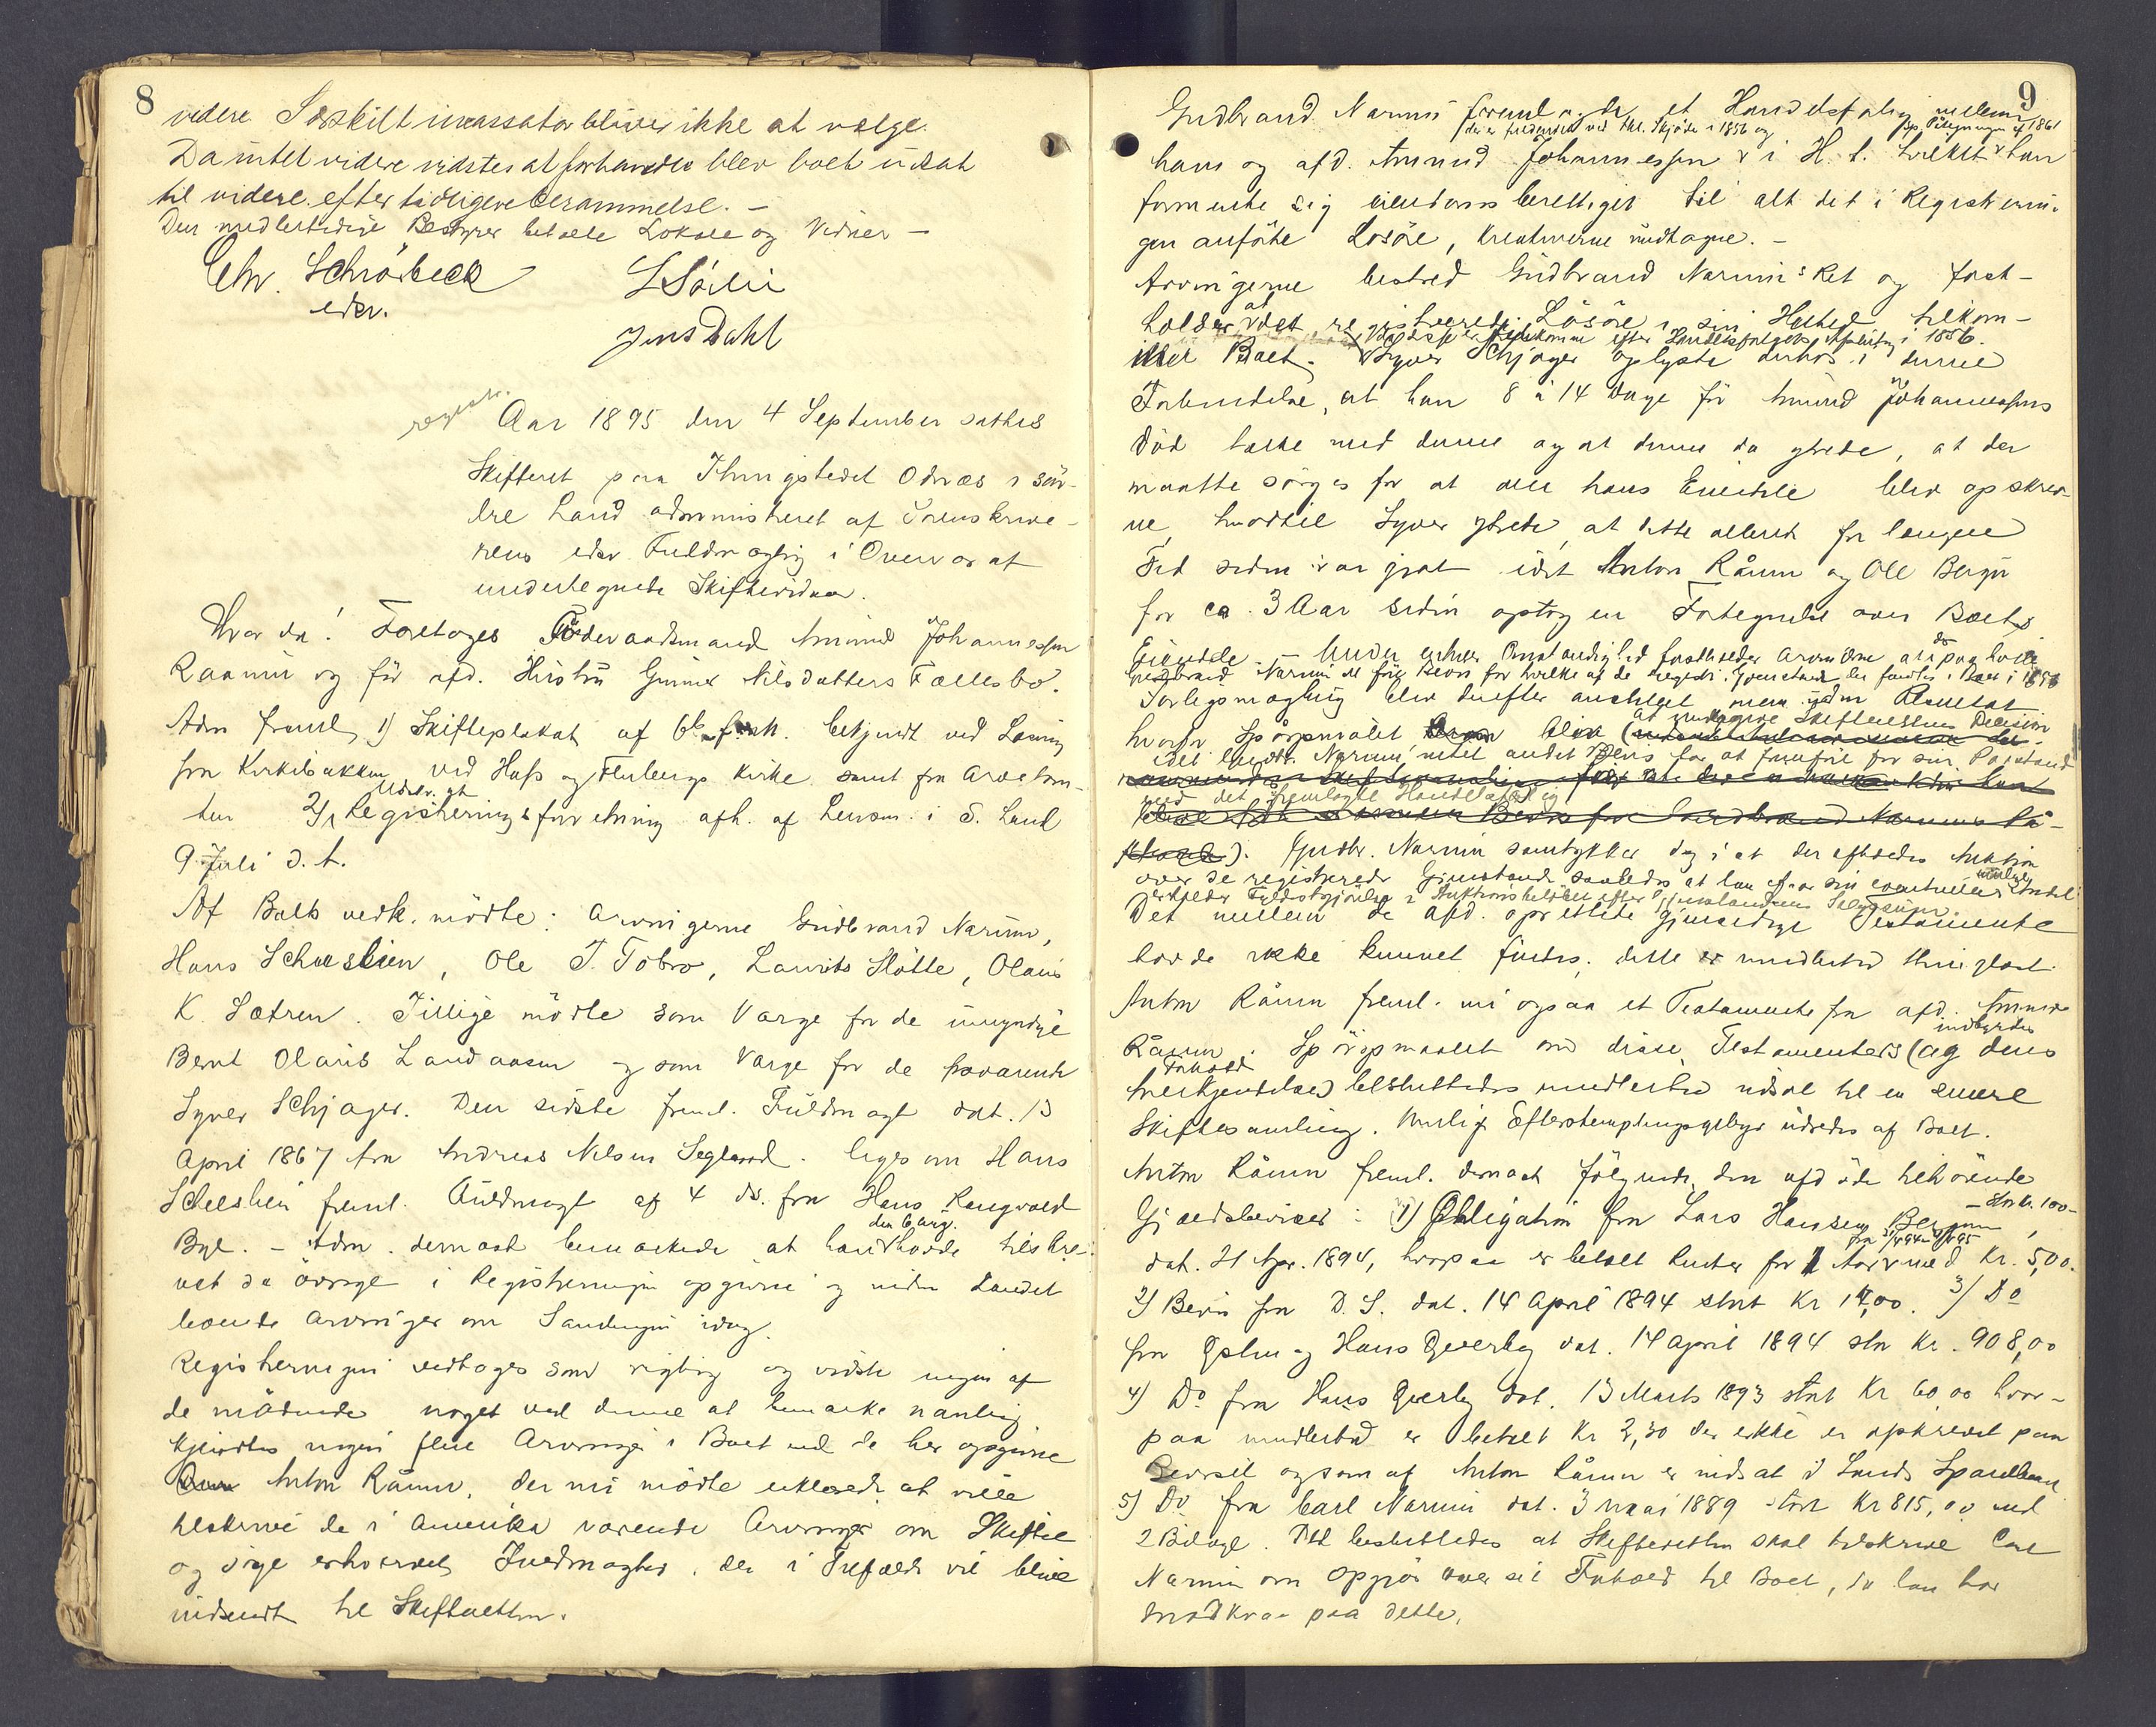 8
videre Særskilt incassator bliver ikke at vælge.
Da intet videre vidstes at forhandle blev boet udsat
til videre efter tidligere berammelse. –
Den midlertidige Bestyrer betalte Lokale og Vidner –
Chr. Schrøbeck
edsv.
L Sölie
Jens Dahl
registr.
Aar 1895 den 4 September sattes
Skifteret paa Thingstedet Odnæs i sön-
dre Land administreret af Sorenskrive-
rens edsv Fuldmægtig i Overvær af
undertegnede Skiftevidner.
Hvor da! Foretoges Föderaadsmand Amund Johannessen
Raanum og för afd. Hustru Gunnor Nilsdatters Fællesbo.
Adm freml. 1) Skifteplakat af bekjendt ved Læsning
fra Kirkebakken ved Hofs og Fluberg Kirke samt fra Arvetom-
ten 2) Udskr. af Registreringsforretning afh. af Lensm. i S. Land
9 Juli d. A.
Af Boets vedk. mödte: Arvingerne Gudbrand Narum,
Hans Scheeslien, Ole J. Tobro, Laurits Slötte, Olaus
K. Sætren. Tillige mödte som Værge for de umyndige
Bernt Olaus Landaasen og som Værge for de fraværende
Syver Schjager. Den sidste freml. Fuldmagt dat. 13
April 1867 fra Andreas Nilsen Seglerud. ligesom Hans
Scheeslien freml. Fuldmagt af 4 ds. fra Hans Rengvold
Bye. – Adm. dernæst bemærkede at han den 6 Aug. havde tilskre-
vet de övrige i Registreringen opgivne og uden Landet
boende Arvinger om Samlingen idag.
Registreringen vedtoges som rigtig og vidste ingen af
de mödende noget ved denne at bemærke nemlig
kjendtes ingen flere Arvinger i Boet end de her opgivne
Anton Rånum, der nu mödte erklærede at ville
tilskrive de i Amerika værende Arvinger om Skiftet
og söge erhvervet Fuldmagter, der i Tilfælde vil blive
indsendt til Skifteretten.
9
Gudbrand Narum fremlagde et Handelsforlig mellem
der er fredlyst ved Skjöde i 1856 og jfr. Påtegningen af 1861
ham og afd. Amund Johannessen i H. t. hvilket han
formente sig eiendomsberettiget til alt det i Registrerin-
gen anförte Lösöre, Kreaturerne undtagne. –
Arvingerne bestred Gudbrand Narums Ret og fast-
holder at det registrerede Lösöre i sin Helhed tilkom-
mer Boet. Syver Schjager oplyste derhos i denne
efter Handelsforligets Afslutning i 1856.
Forbindelse, at han 8 à 14 Dage för Amund Johannessens
Död talte med denne og at denne da ytrede, at der
maatte sörges for at alle hans Eiendele blev opskrev-
ne, hvortil Syver ytrede, at dette allerede for længere
Tid siden var gjort idet Anton Rånum og Ole Bergum
for ca. 3 Aar siden optog en Fortegnelse over Boets
Eiendele. – Under enhver Omstændighed fastholder Arvingerne at de paastaar
Gudbrand Narum at före Bevis for hvilke af de registr. Gjenstande der fandtes i Boet i 1856
Forligsmægling blev derefter anstillet men uden Resultat
hvorfor Spörgsmålet bliver at undergive Skifterettens Decision
idet Gudbr. Narum intet andet Bevis har at fremföre for sin Paastand
end det fremlagte Handelsforlig
). Gudbr. Narum samtykker dog i at der afholdes Auktion
over de registrerede Gjenstande saaledes at han efter sin eventuelle Andel
erholder Fyldestgjörelse i Auktionsbelöbet efter Gjenstandens Salgssum.
Det mellem de afd. oprettede gjensidige Testamente
havde ikke kunnet findes; dette er imidlertid thinglæst.
Anton Rånum freml. nu ogsaa et Testamente fra afd. Amund
Rånum. Spörgsmaalet om disse Testamenters (og deres indbyrdes
Forhold
Anerkjendelse) besluttedes imidlertid udsat til en senere
Skiftesamling. Muligt Efterstemplingsgebyr udredes af Boet.
Anton Rånum freml. dernæst fölgende den afdöde tilhörende
Gjældsbeviser: 1) Obligation fra Lars Hansen Bergum – stor kr. 100 –
dat. 21 Apr. 1894, hvorpaa er betalt Renter for 1 Aar med Kr. 5,00.
2) Bevis fra D. S. dat. 14 April 1894 stort Kr 14,00. 3) Do
fra Gulm og Hans Qverby dat. 14 April 1894 stor Kr. 908,00
4) Do fra Hans Qverby dat. 13 Marts 1893 stort Kr 60,00 hvor-
paa imidlertid er betalt Kr 2,30 der ikke er afskrevet paa
Beviset og som af Anton Rånum er indsat i Lands Sparebank
5) Do fra Carl Narum dat. 3 Mai 1889 stort Kr 815,00 med
2 Bilage. Det besluttedes at Skifteretten skal tilskrive Carl
Narum om Opgjör over sit Forhold til Boet, da han har
Modkrav paa dette.